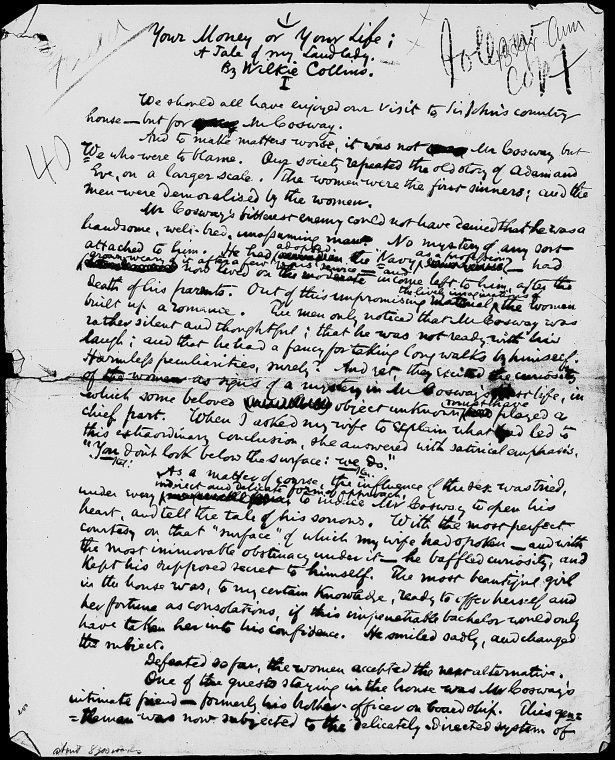 Your Money or Your Life;
A Tale of my Landlady.
By Wilkie Collins.
I
Copy
We should all have enjoyed our visit to Sir John's country
house — but for Mr Cosway.
And to make matters worse, it was not Mr Cosway but
We who were to blame. Our society repeated the old story of Adam and
Eve, on a larger scale. The women were the first sinners; and the
men were demoralised by the women.
Mr Cosway's bitterest enemy could not have denied that he was a
handsome, well-bred, unassuming man. No mystery of any sort
attached to him. He had adopted the Navy as a profession — had
grown weary of it after a few years' service — and
now lived on the moderate income left to him, after the
death of his parents. Out of this unpromising material the lively imaginations of the women
built up a romance. The men only noticed that Mr Cosway was
rather silent and thoughtful; that he was not ready with his
laugh; and that he had a fancy for taking long walks by himself.
Harmless peculiarities, surely? And yet, they excited the curiosity
of the women as signs of a mystery in Mr Cosway's past life, in
which some beloved object unknown must have played a
chief part. When I asked my wife to explain what had led to
this extraordinary conclusion, she answered with satirical emphasis,
"You don't look below the surface: we do."
As a matter of course, the influence of the sex was tried,
under every indirect and delicate form of approach, to induce Mr Cosway to open his
heart, and tell the tale of his sorrows. With the most perfect
courtesy on that "surface" of which my wife had spoken — and with
the most immovable obstinacy under it — he baffled curiosity, and
kept his supposed secret to himself. The most beautiful girl
in the house was, to my certain knowledge, ready to offer herself and
her fortune as consolations, if this impenetrable bachelor would only
have taken her into his confidence. He smiled sadly, and changed
the subject.
Defeated so far, the women accepted the next alternative.
One of the guests staying in the house was Mr Cosway's
intimate friend — formerly his brother-officer on board ship. This gen=
=tleman was now subjected to the delicately-directed system of